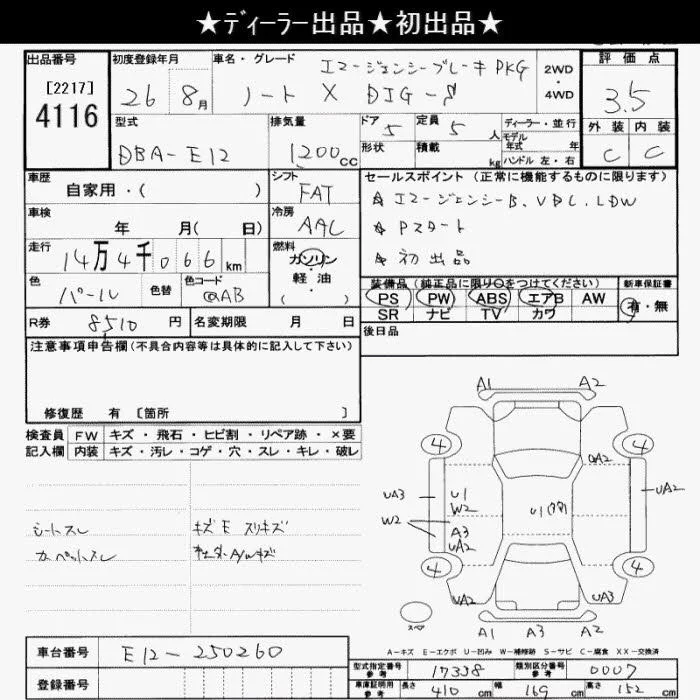 ★ディーラー出品★初出品★
出品番号
[2217]
4116
初度登録年月
26 8月
車名・グレード
エマージェンシーブレーキPKG
ノート X DIG-S
2WD
4WD
評価点
3.5
外装 内装
C C
型式
DBA-E12
排気量
1200cc
ドア 5
定員 5人
形状
積載 kg
ディーラー・並行
モデル年式 年
ハンドル 左・右
車歴
自家用・( )
シフト
FAT
セールスポイント(正常に機能するものに限ります)
☆エマージェンシーB、VDC、LDW
☆Pスタート
☆初出品
車検
年 月( 日)
冷房
AAC
走行
14万4千066km
燃料
ガソリン
軽油
( )
色
パール
色替
色コード
QAB
装備品(純正品に限り○をつけてください)
PS PW ABS エアB AW
SR ナビ TV カワ
新車保証書
有・無
R券
8510円
名変期限 月 日
後日品
注意事項申告欄(不具合内容等は具体的に記入して下さい)
修復歴 有 [箇所 ]
検査員記入欄
FW キズ・飛石・ヒビ割・リペア跡・×要
内装 キズ・汚レ・コゲ・穴・スレ・キレ・破レ
シートスレ
カーペットスレ
キズE スリキズ
社外A/Wキズ
A1 A2
4 4
UA3
W2
U1
W2
A3
UA2
U1
UA2
UA2
4 4
UA2
UA3
スペア
A1 A3 A2
A-キズ E-エクボ U-凹み W-補修跡 S-サビ C-腐食 XX-交換済
車台番号
E12-250260
登録番号
型式指定番号参考 17338
類別区分番号参考 0007
車庫証明用参考
長さ 410cm
幅 169cm
高さ 152cm